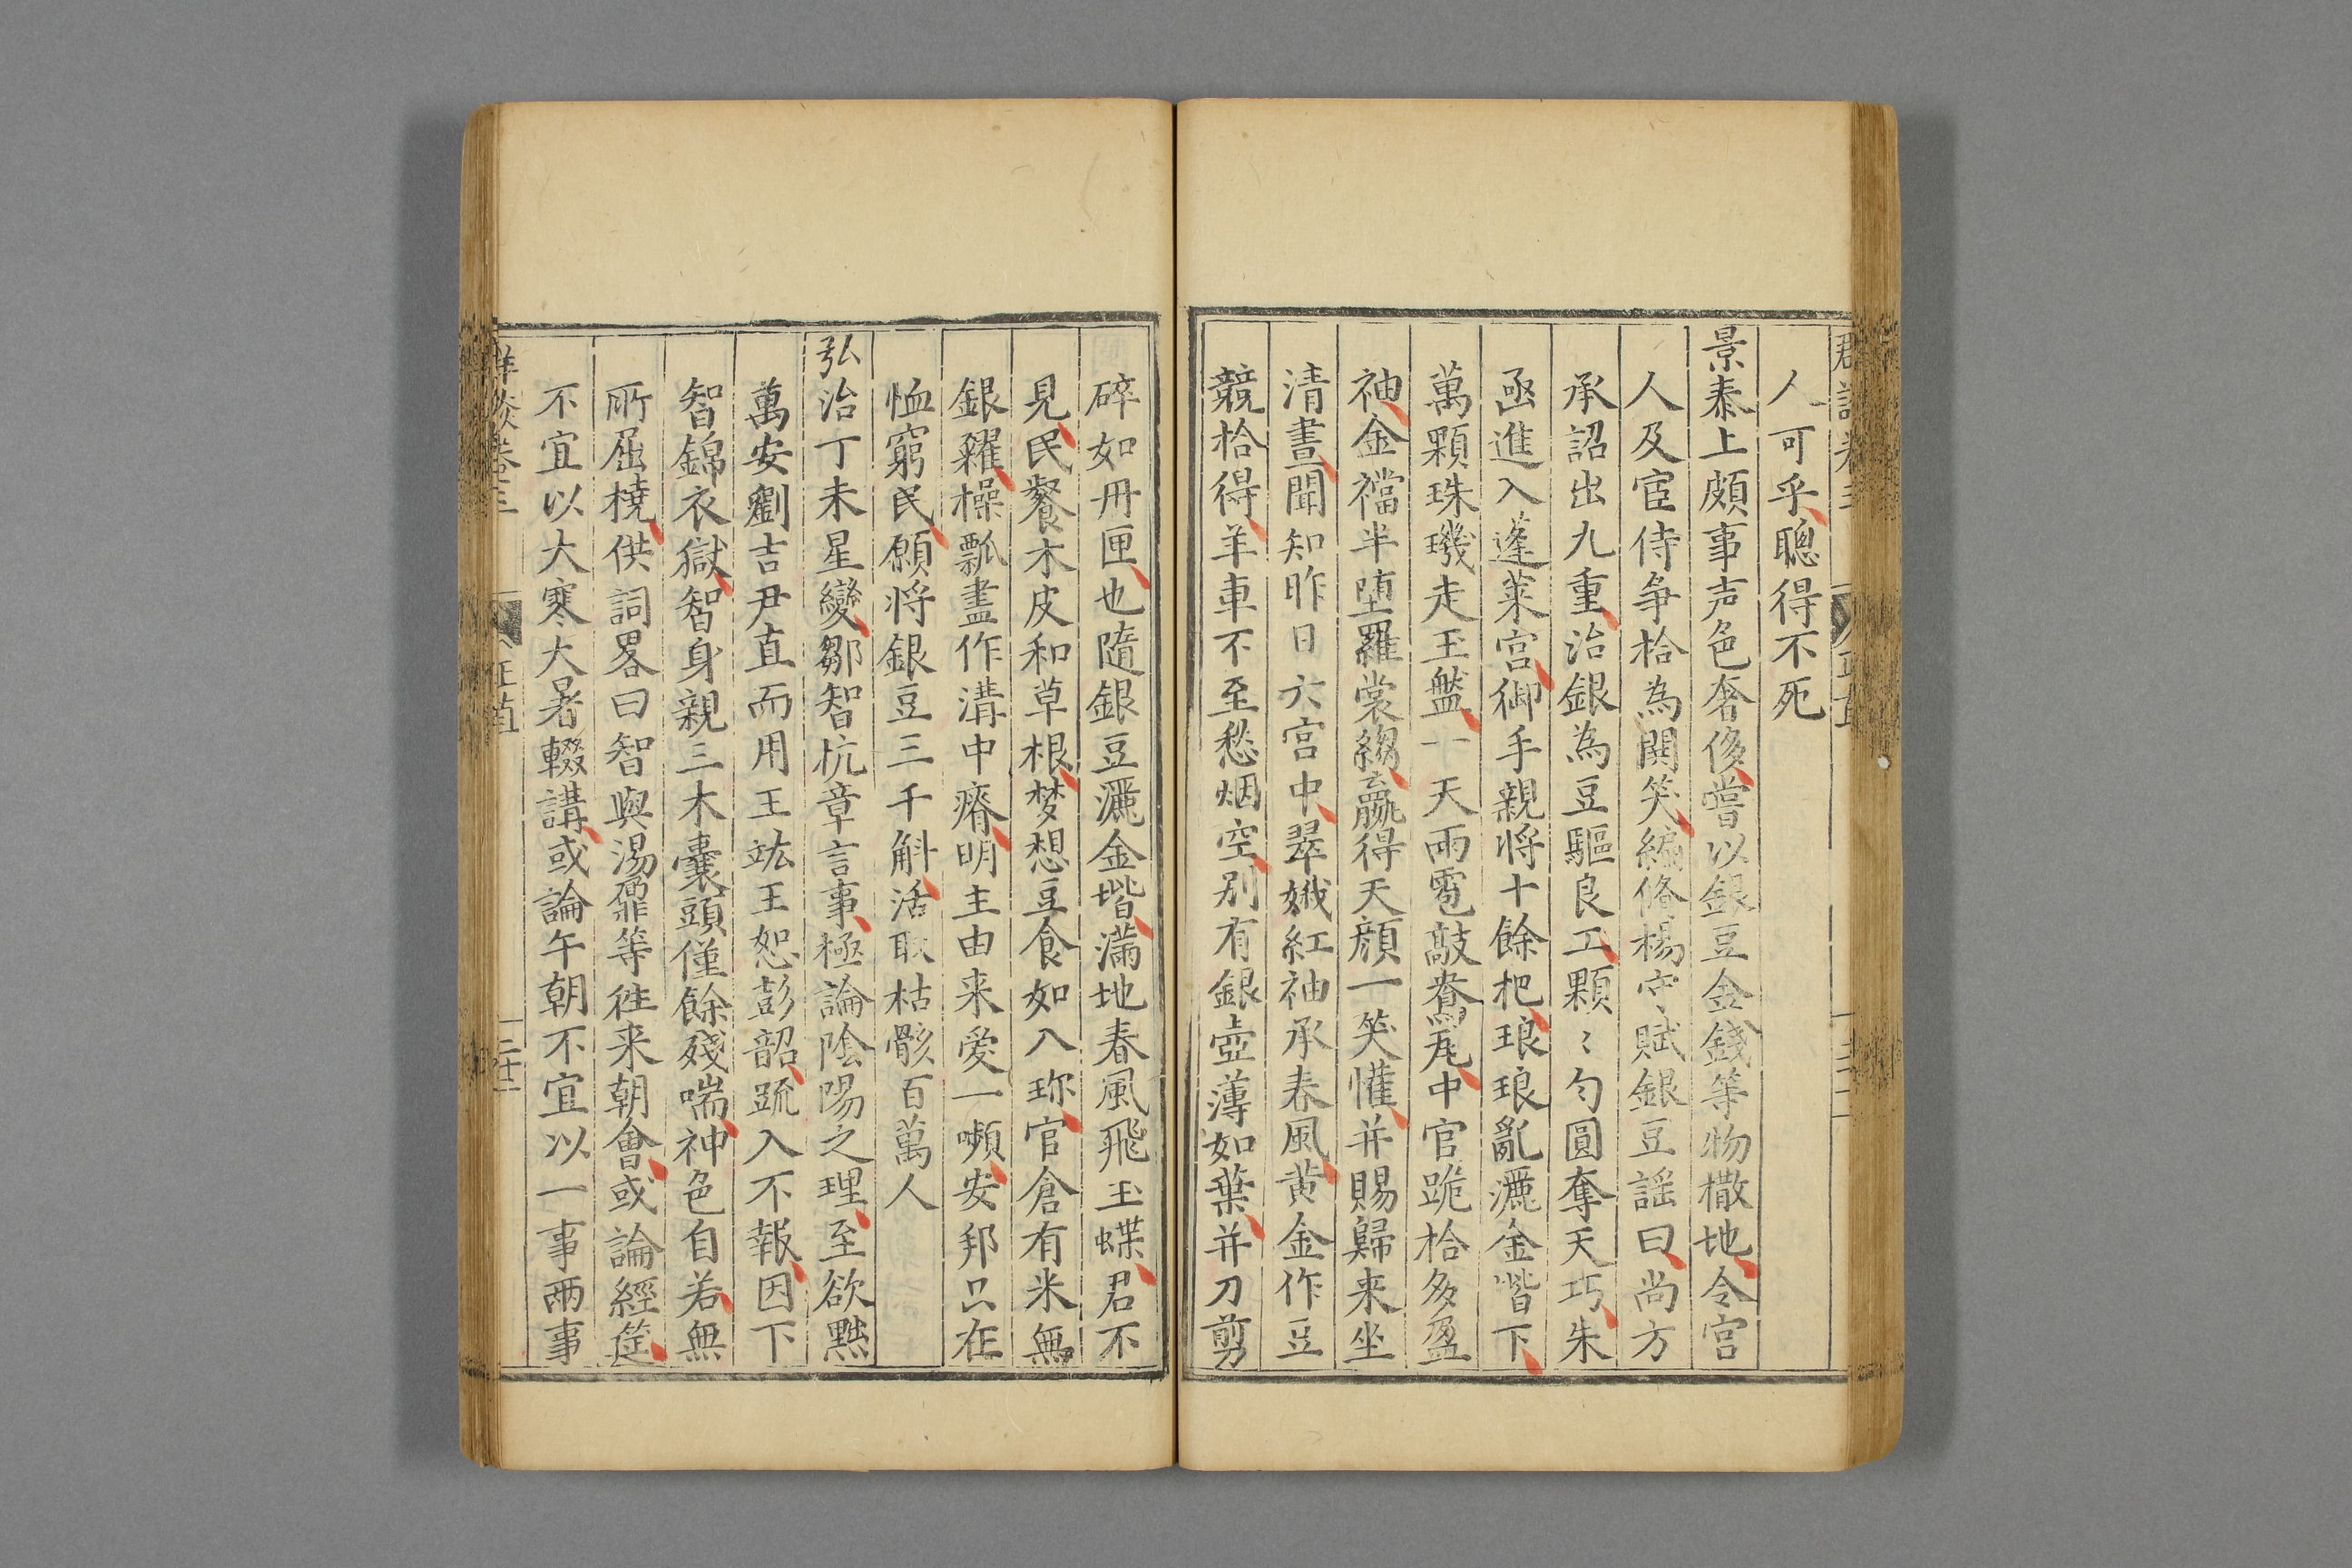 人可乎聰得不死
景泰上頗事声色奢侈嘗以銀豆金錢等物撒地令宮
人及宦侍争拾為閧笑編脩楊守賦銀豆謡曰尚方
承詔出九重治銀為豆驅良工顆〻勻圓奪天巧朱
函進入蓬莱宮御手親将十餘把琅琅亂灑金堦下
萬顆珠璣走玉盤一天雨雹敲鴛瓦中官跪拾多盈
袖金襠半堕羅裳縐贏得天顔一笑懽并賜歸来坐
清晝聞知昨日六宮中翠娥紅袖承春風黄金作豆
競拾得羊車不至愁烟空别有銀壺薄如葉并刀剪
碎如冊匣也隨銀豆灑金堦滿地春風飛玉蝶君不
見民餐木皮和草根梦想豆食如入珎官倉有米無
銀糴操瓢盡作溝中瘠明主由来愛一嚬安邦只在
恤窮民願将銀豆三千斛活取枯骸百萬人
弘治丁未星變鄒智抗章言事極論陰陽之理至欲黙
萬安劉吉尹直而用王竑王恕彭韶疏入不報因下
智錦衣獄智身親三木囊頭僅餘殘喘神色自若無
所屈橈供詞畧曰智與湯鼐等徃来朝會或論經筵
不宜以大寒大暑輟講或論午朝不宜以一事兩事